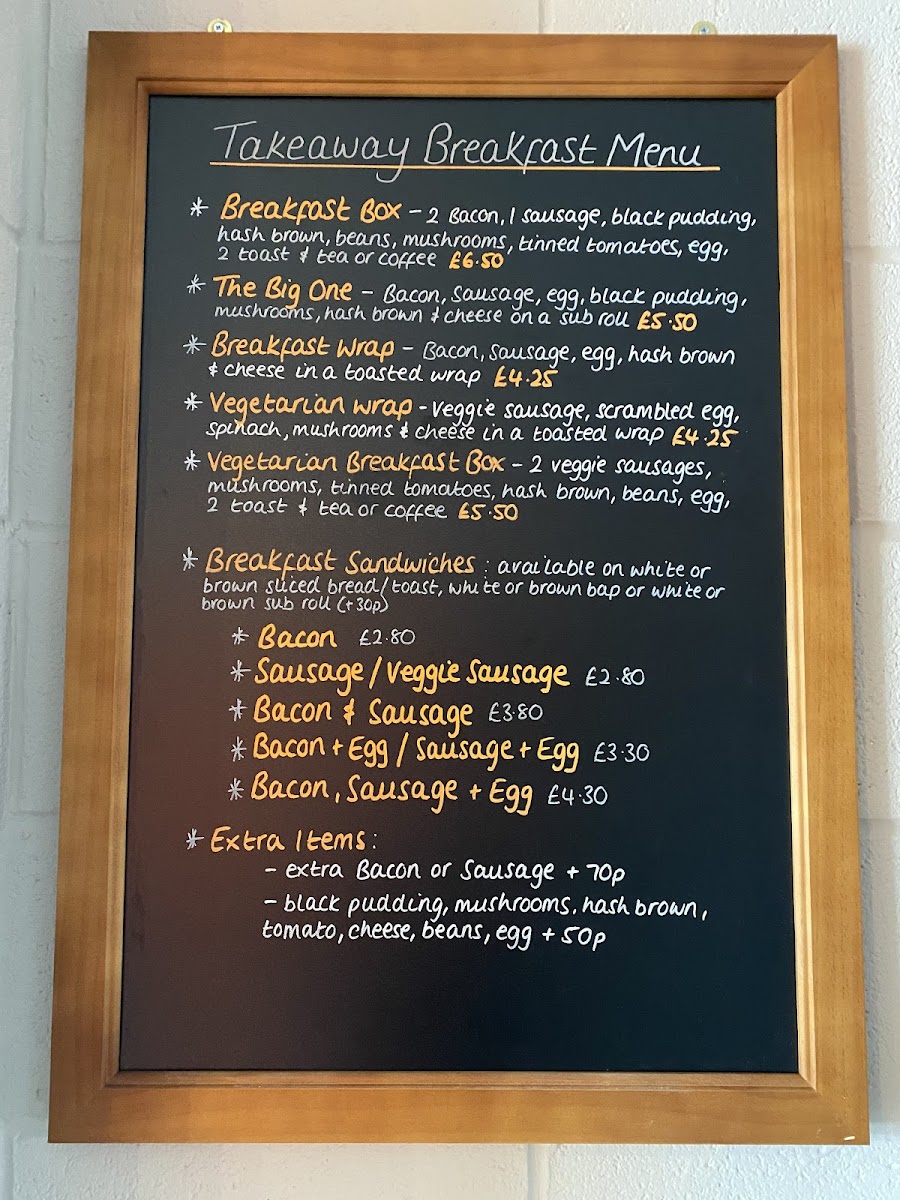 Takeaway Breakfast Menu
* Breakfast Box - 2 Bacon, 1 sausage, black pudding,
hash brown, beans, mushrooms, tinned tomatoes, egg,
2 toast & tea or coffee £6.50
* The Big One - Bacon, Sausage, egg, black pudding,
mushrooms, hash brown & cheese on a sub roll £5.50
* Breakfast wrap - Bacon, Sausage, egg, hash brown
& cheese in a toasted wrap £4.25
* Vegetarian wrap - veggie sausage, scrambled egg,
spinach, mushrooms & cheese in a toasted wrap £4.25
* Vegetarian Breakfast Box - 2 veggie sausages,
mushrooms, tinned tomatoes, hash brown, beans, egg,
2 toast & tea or coffee £5.50
* Breakfast Sandwiches : available on white or
brown sliced bread/toast, white or brown bap or white or
brown sub roll (+30p)
* Bacon £2.80
* Sausage / Veggie Sausage £2.80
* Bacon & Sausage £3.80
* Bacon + Egg / Sausage + Egg £3.30
* Bacon, Sausage + Egg £4.30
* Extra Items:
- extra Bacon or Sausage + 70p
- black pudding, mushrooms, hash brown,
tomato, cheese, beans, egg + 50p